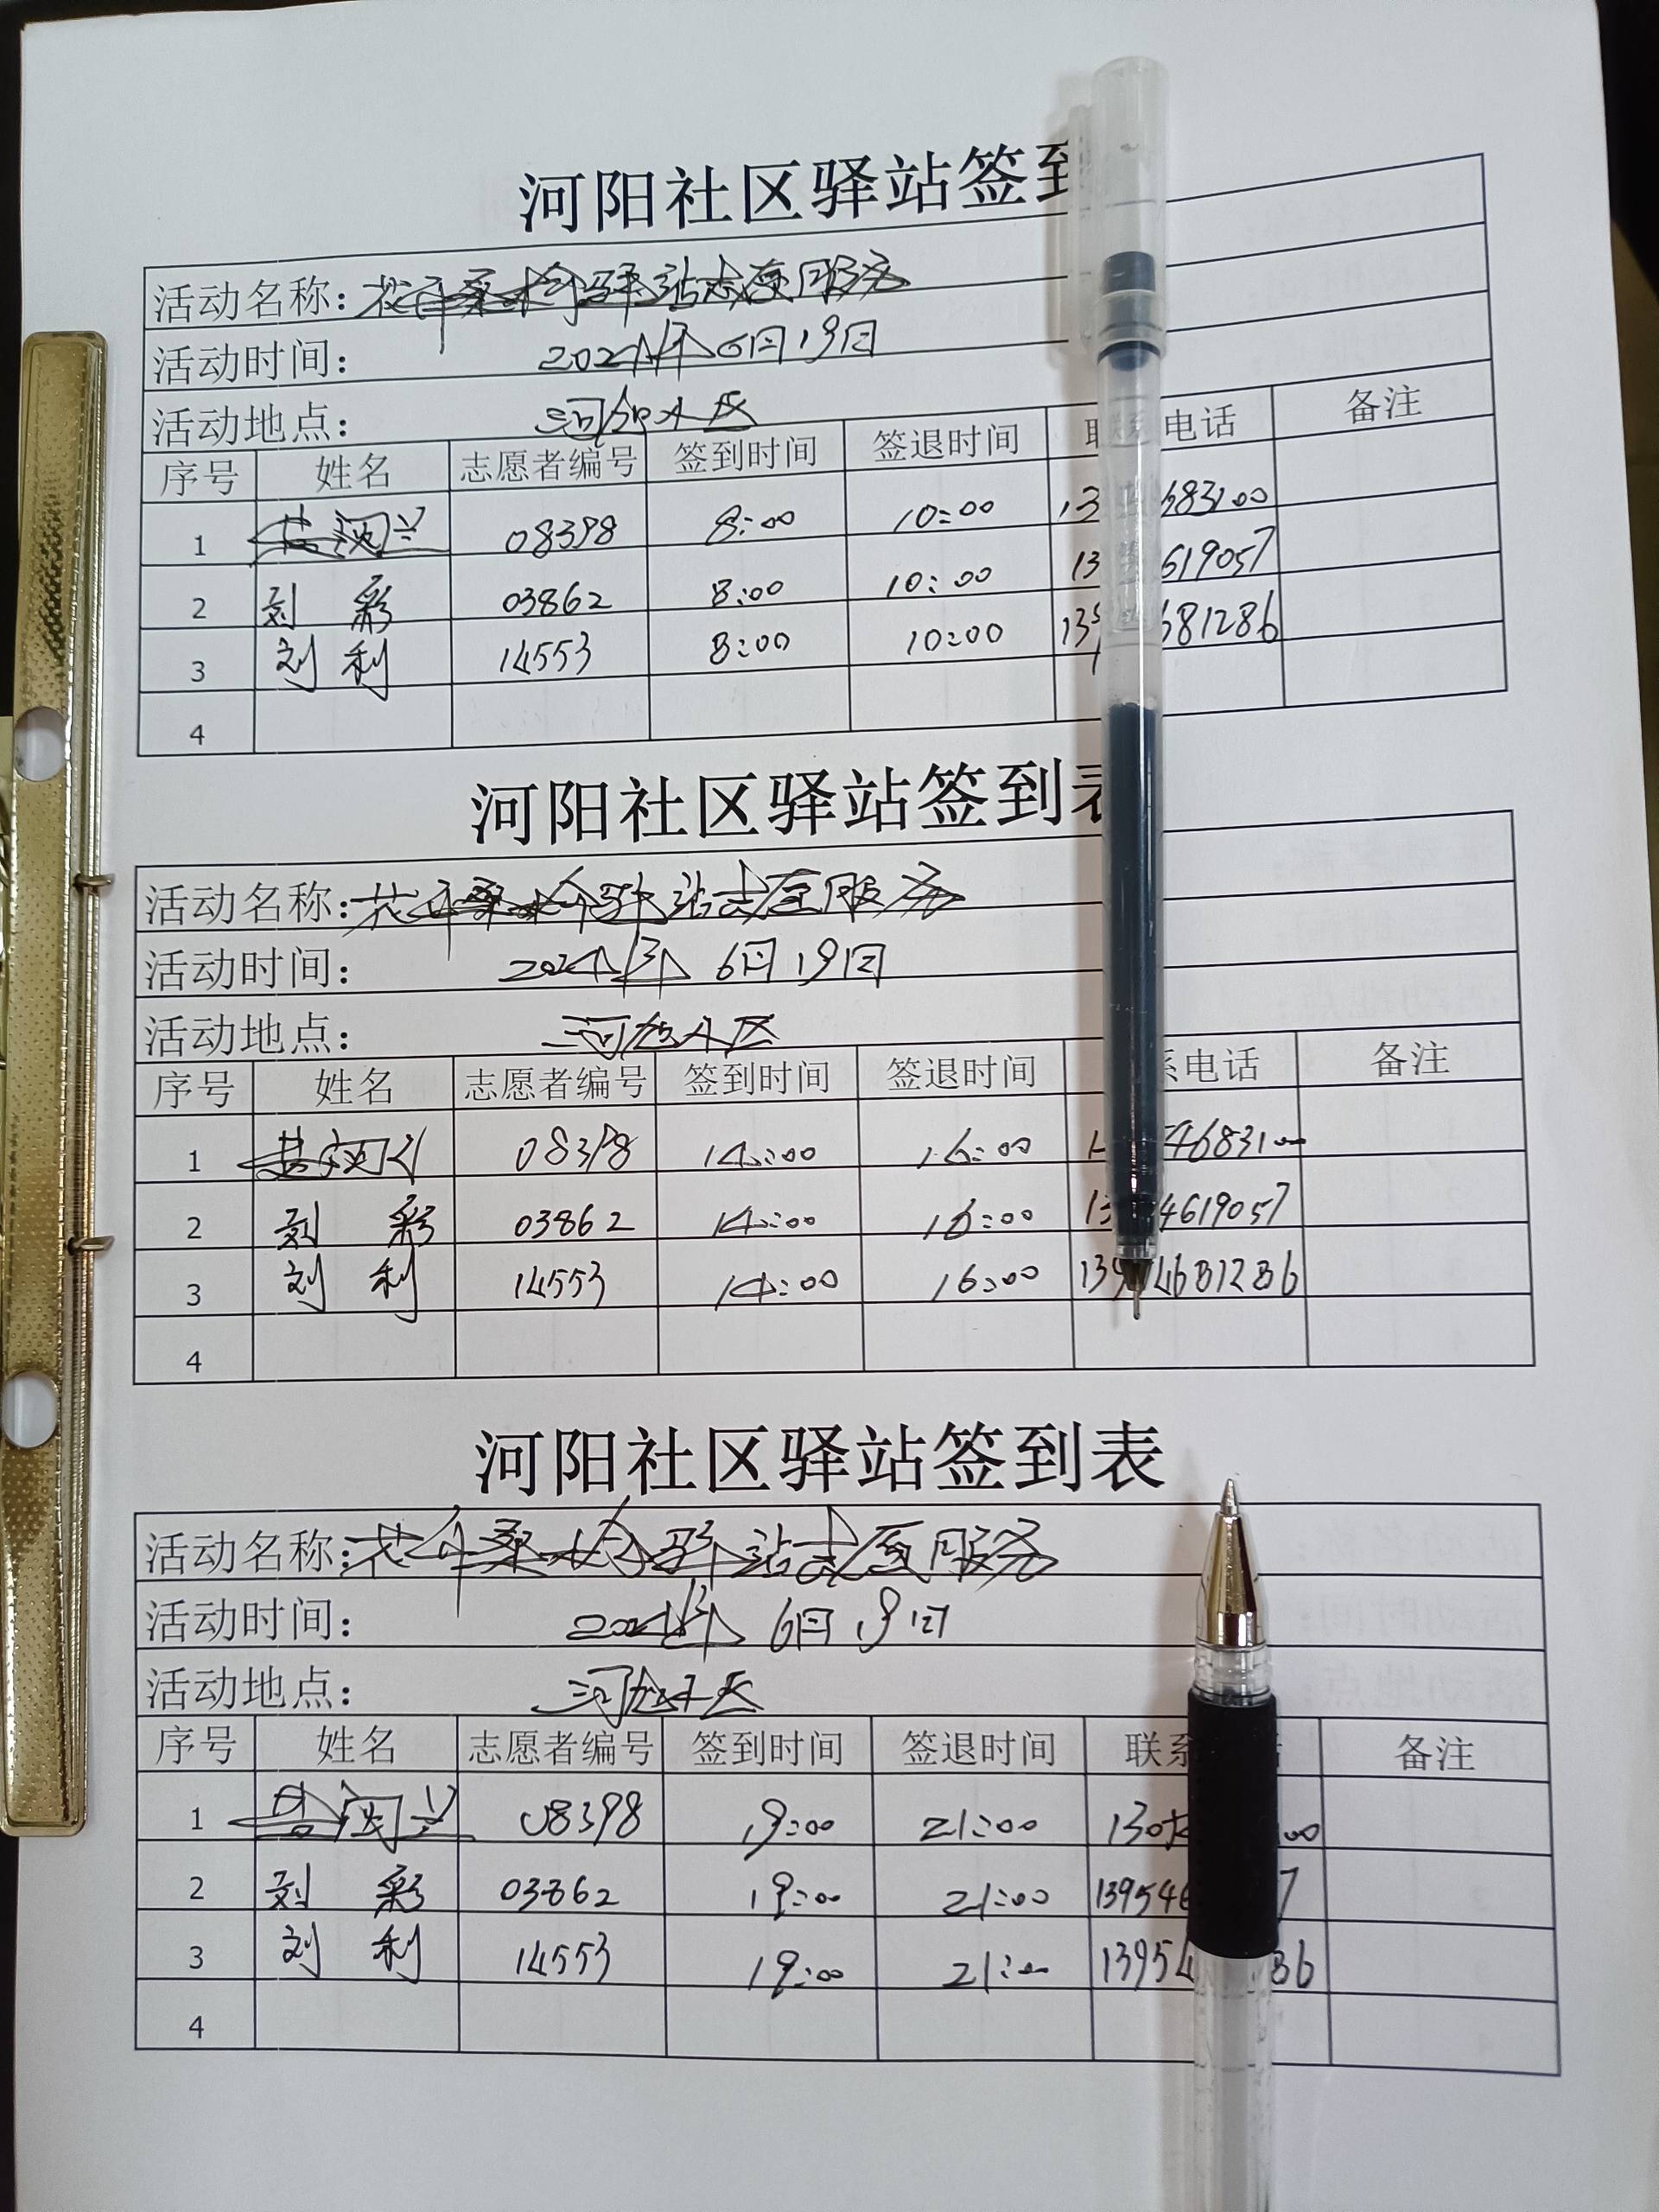 河阳社区驿站签到
活动名称：花年桑榆驿站志愿服务
活动时间： 2024年6月19日
活动地点： 小区
序号 姓名 志愿者编号 签到时间 签退时间 联系电话 备注
1 08398 8:00 10:00 13 683100
2 刘彩 03862 8:00 10:00 13 619057
3 刘利 14553 8:00 10:00 13 681286
4
河阳社区驿站签到表
活动名称：花年桑榆驿站志愿服务
活动时间： 2024年6月19日
活动地点： 小区
序号 姓名 志愿者编号 签到时间 签退时间 系电话 备注
1 08398 14:00 16:00 4683100
2 刘彩 03862 14:00 16:00 13 4619057
3 刘利 14553 14:00 16:00 139 4681286
4
河阳社区驿站签到表
活动名称：花年桑榆驿站志愿服务
活动时间： 2024年6月19日
活动地点： 小区
序号 姓名 志愿者编号 签到时间 签退时间 联系 备注
1 08398 19:00 21:00 130 00
2 刘彩 03862 19:00 21:00 139546 7
3 刘利 14553 19:00 21:00 13954 86
4